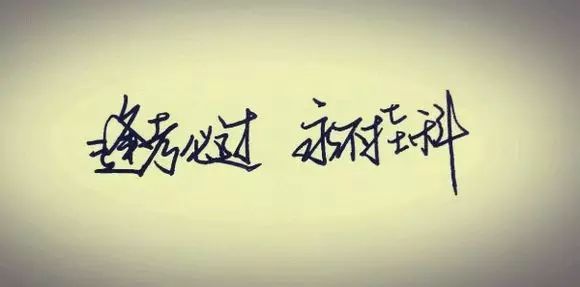 逢考必过 永不挂科